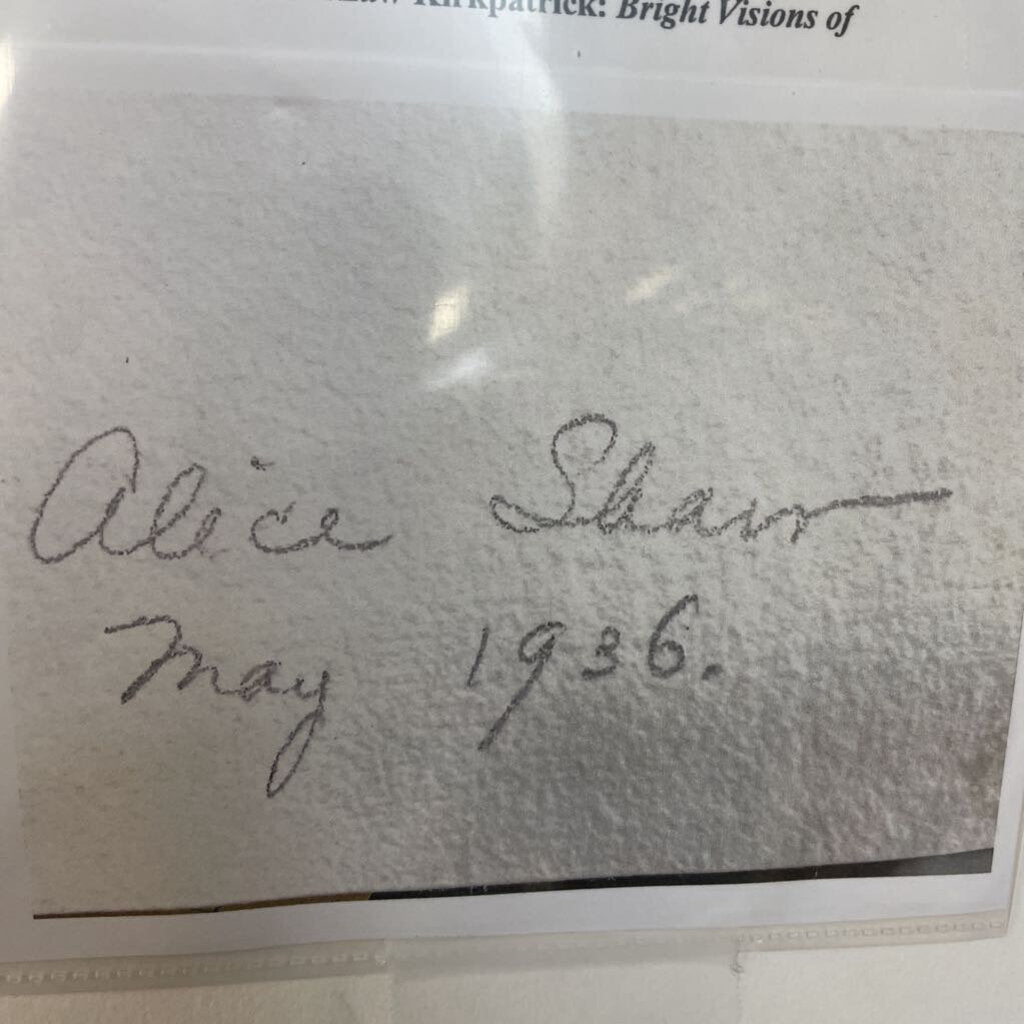 Kirkpatrick: Bright Visions of
Alice Shaw
May 1936.